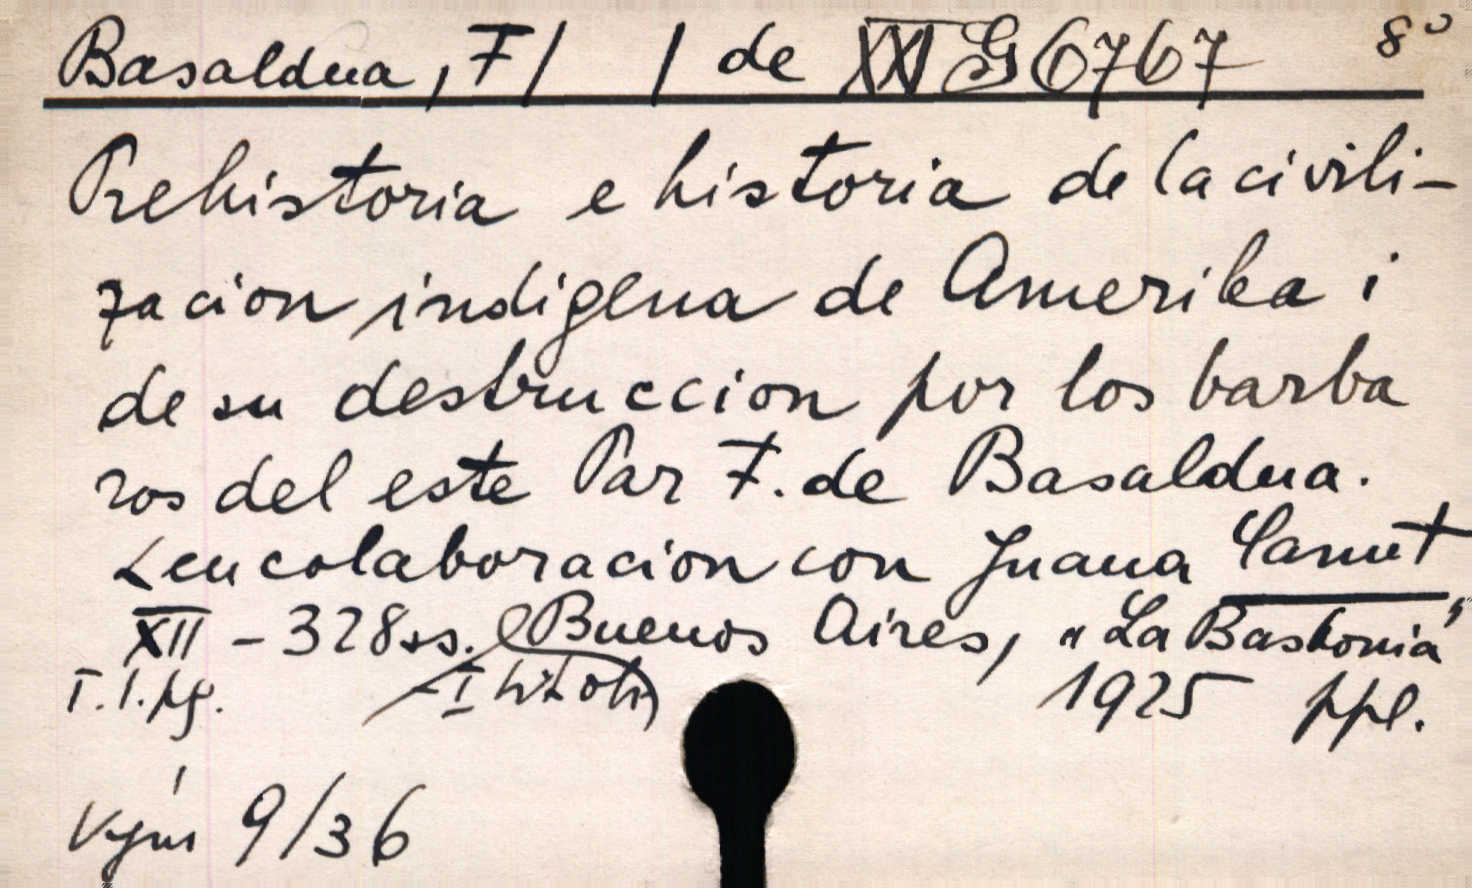 Basaldua, F/ / de XXI G 6767 8°
Prehistoria e historia de la civili-
zacion indigena de Amerika i
de su destruccion por los barba
ros del este Par F. de Basaldua.
en colaboracion con Juana Canut
XII - 328 ss. Buenos Aires, "La Baskonia"
I. l. pg. 1925 ppl.
9/36